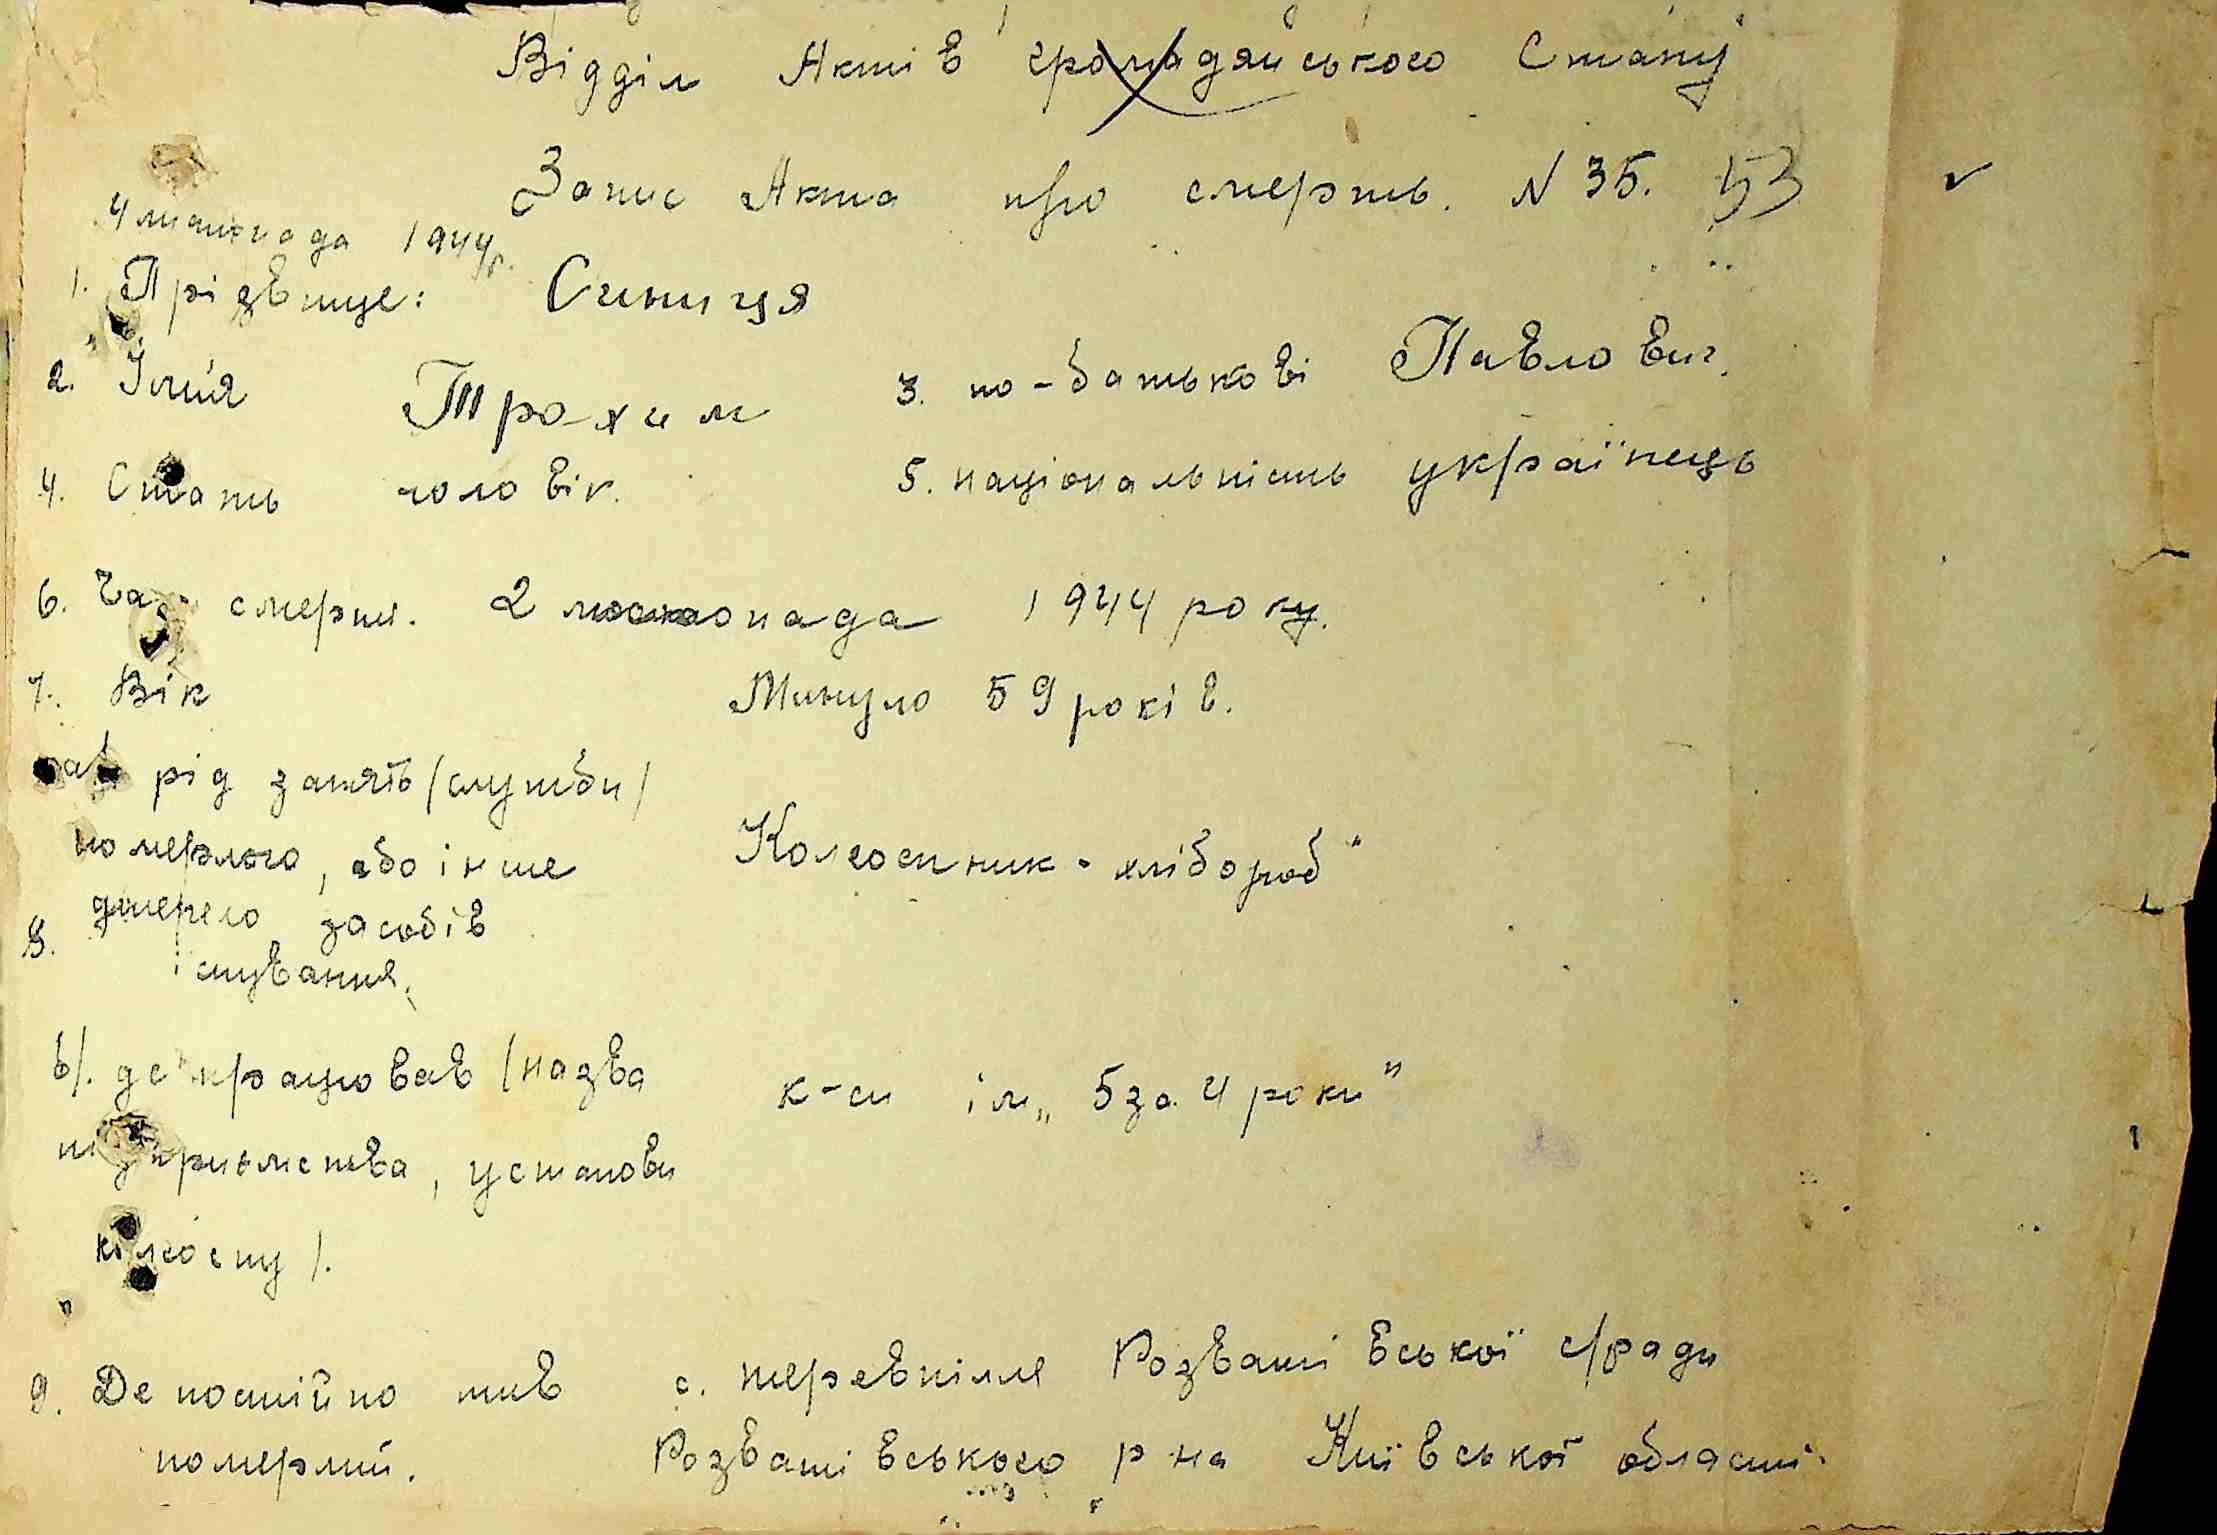 Відділ Актів громадянського Стану
Запис Акта про смерть. N 35. 53
4 листопада 1944 р.
1. Прізвище: Синиця
2. Імия Трохим 3. по-батькові Павлович.
4. Стать чоловік. 5. національність українець
6. Час смерти. 2 листопада 1944 року.
7. Вік Минуло 59 років.
а) рід занять /служби/
померлого, або інше Колгоспник "хлібороб"
джерело засобів
8. існування.
в/. де працював /назва к-сп ім. "5 за 4 роки"
підприємства, установи
колгоспу/.
9. Де постійно жив с. Жеревпілля Розважівської с/ради
померлий. Розважівського р на Київської області.